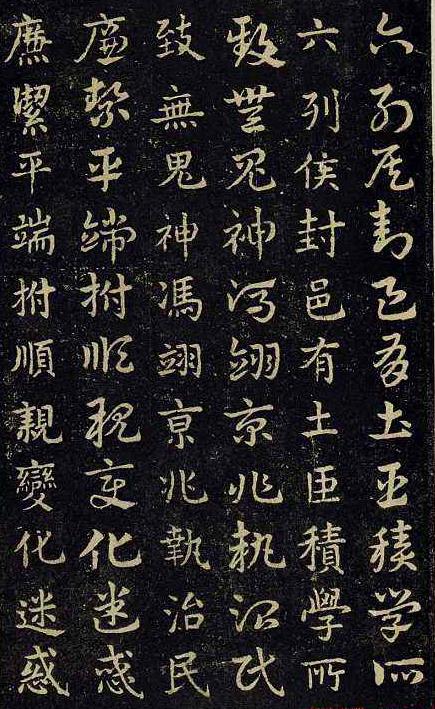 六列侯封邑有土臣積學所
六列侯封邑有土臣積學所
致無鬼神馮翊京兆執治民
致無鬼神馮翊京兆執治民
廉絜平端拊順親變化迷惑
廉絜平端拊順親變化迷惑